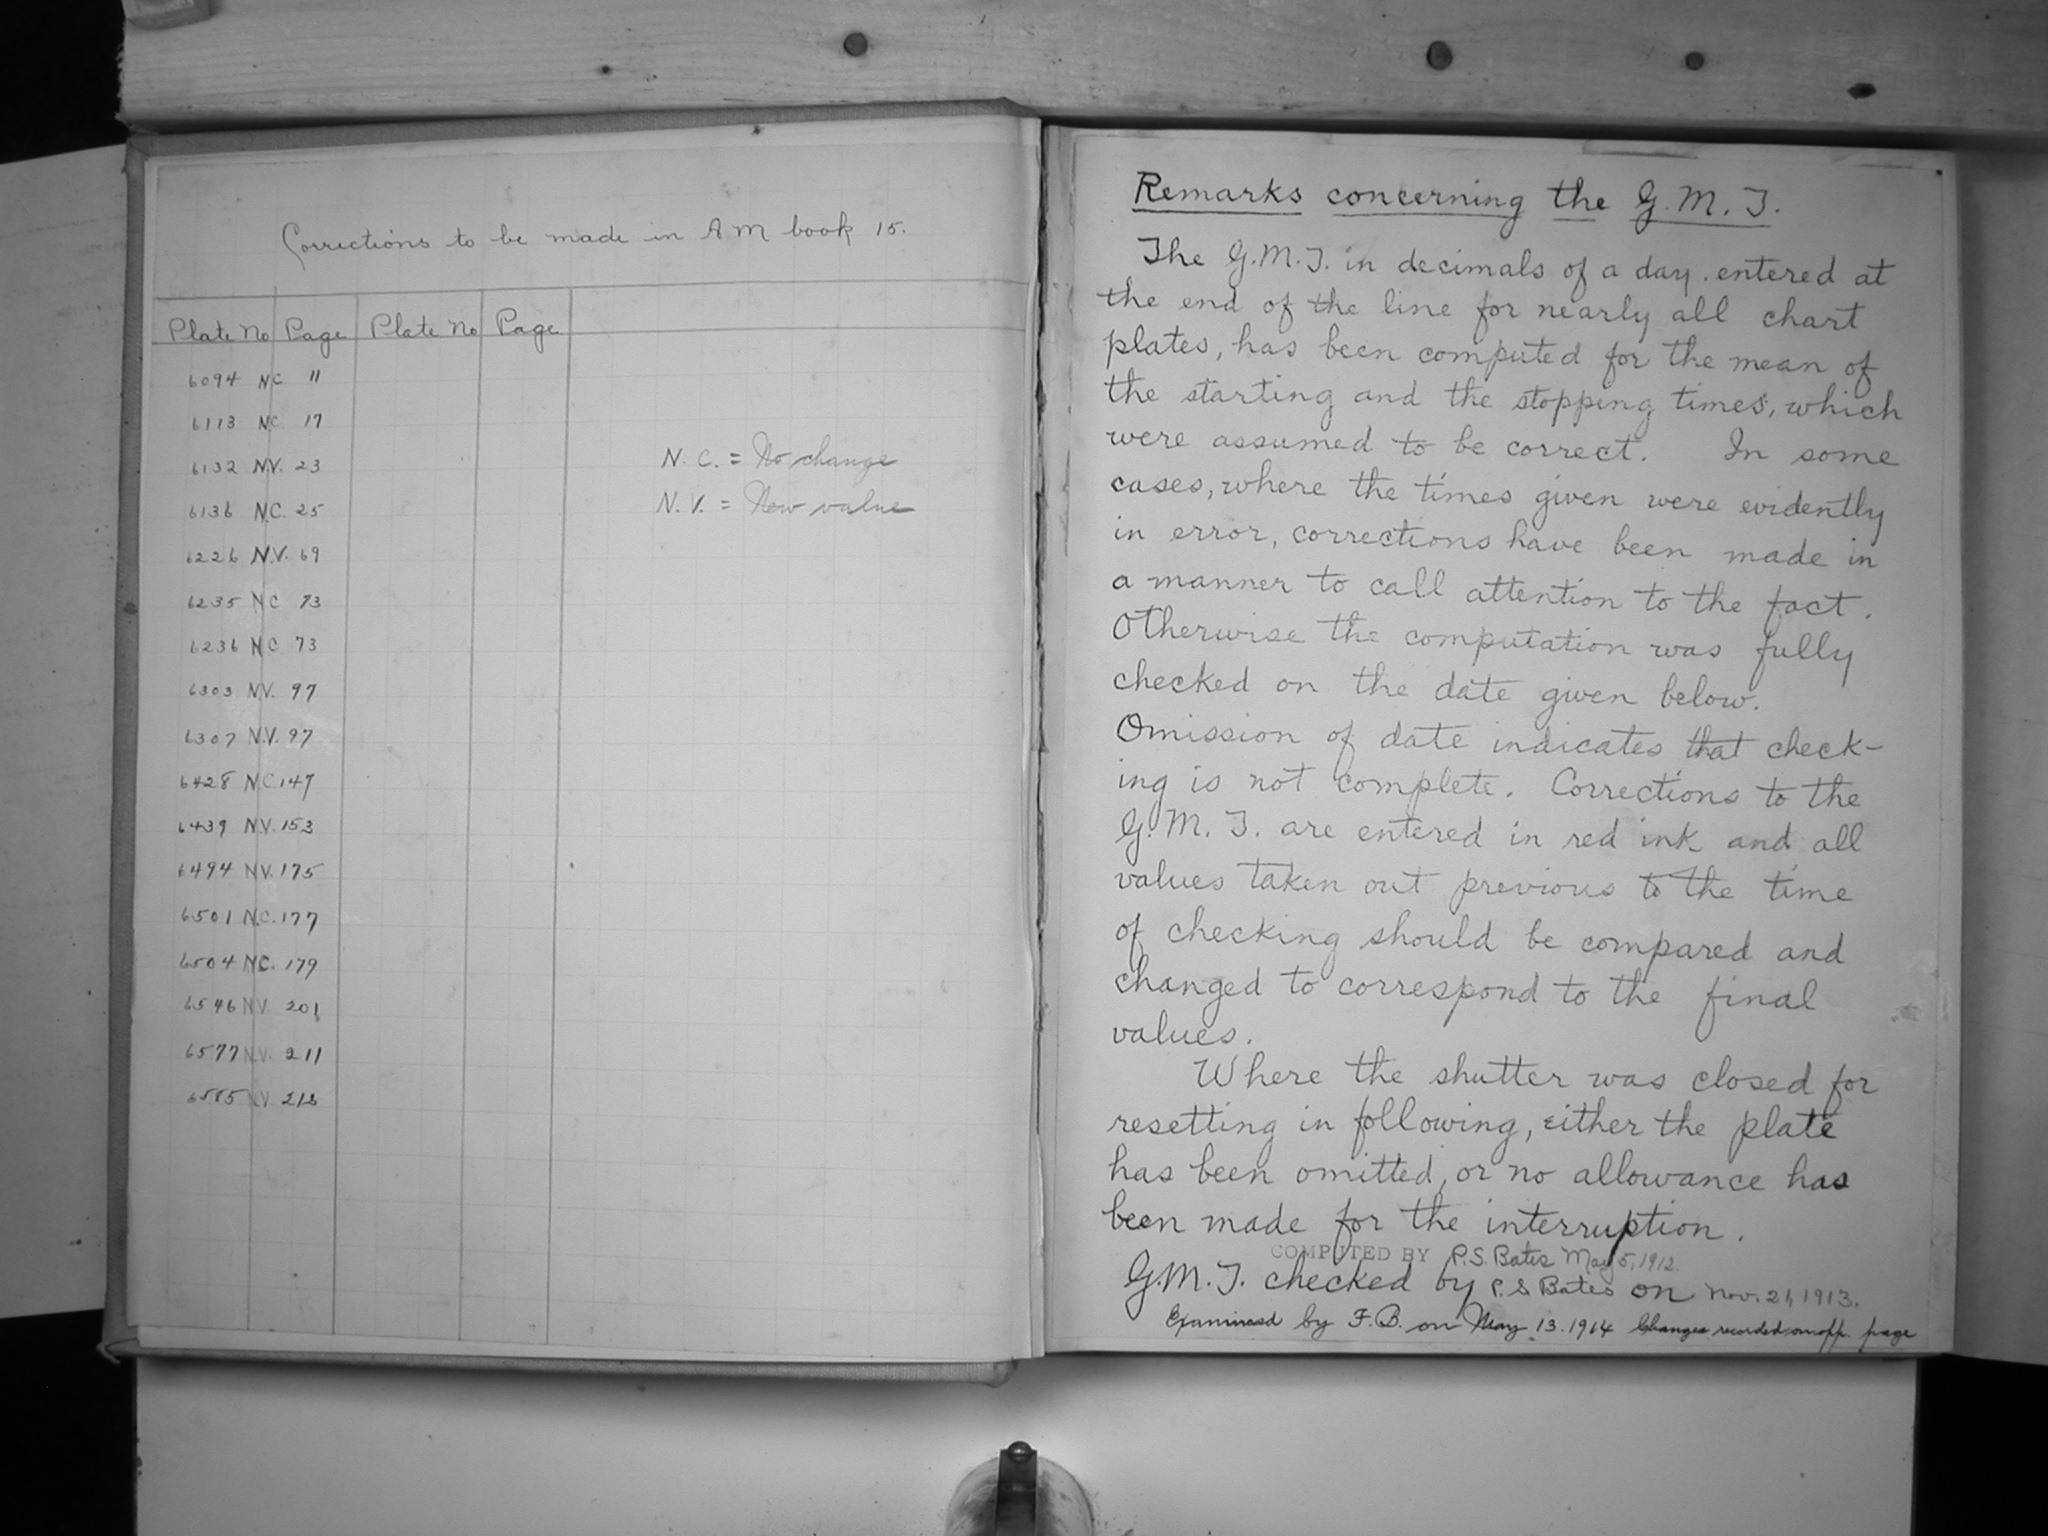 Corrections to be made in AM book 15.
Plate No Page Plate No Page
6094 NC 11
6113 NC 17
6132 N.V. 23
6136 N.C. 25
6226 N.V. 69
6235 NC 73
6236 NC 73
6303 N.V. 97
6307 N.V. 97
6428 N.C. 147
6439 N.V. 153
6494 N.V. 175
6501 N.C. 177
6504 NC. 179
6546 N.V. 201
6577 N.V. 211
6585 N.V. 213
N.C. = No change
N.V. = New value
Remarks concerning the G.M.T.
The G.M.T. in decimals of a day entered at
the end of the line for nearly all chart
plates, has been computed for the mean of
the starting and the stopping times, which
were assumed to be correct. In some
cases, where the times given were evidently
in error, corrections have been made in
a manner to call attention to the fact.
Otherwise the computation was fully
checked on the date given below.
Omission of date indicates that check-
ing is not complete. Corrections to the
G.M.T. are entered in red ink and all
values taken out previous to the time
of checking should be compared and
changed to correspond to the final
values.
Where the shutter was closed for
resetting in following, either the plate
has been omitted, or no allowance has
been made for the interruption.
COMPUTED BY P.S. Bates May 5, 1912.
G.M.T. checked by P.S Bates on Nov. 21, 1913.
Examined by F.B. on May 13. 1914 Changes recorded on opp. page